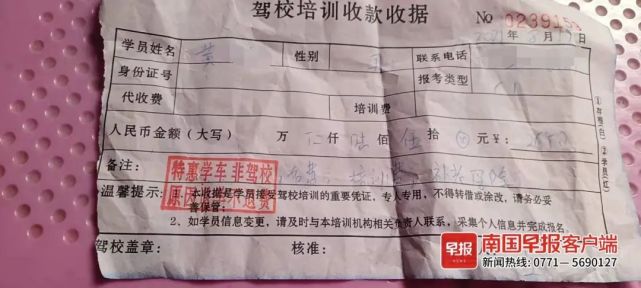 驾校培训收款收据
No 0239153
年 月 日
学员姓名 黄 性别 联系电话
身份证号 报考类型
代收费 培训费
人民币金额(大写) 万 仟 陆 佰 伍 拾 元 ¥:
备注: 培训费
特惠学车 非驾校
原因 不退费
温馨提示: 1、本收据是学员接受驾校培训的重要凭证,专人专用,不得转借或涂改,请务必妥
等保管。
2、如学员信息变更,请及时与本培训机构相关负责人联系,采集个人信息并完成报名。
驾校盖章: 核准:
①存根(白) ②学员(红)
早报 南国早报客户端
新闻热线:0771—5690127